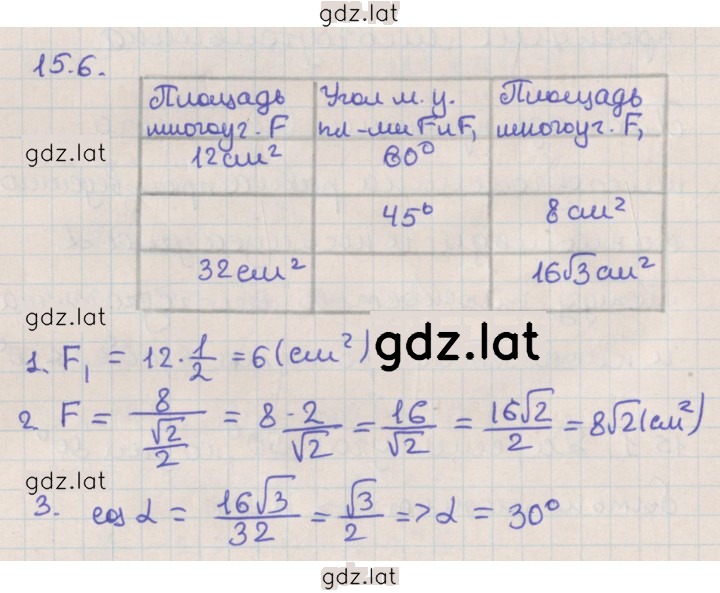 gdz.lat
15.6.
Площадь многоуг. F | Угол м.у. пл-ми F и F₁ | Площадь многоуг. F₁
gdz.lat
12 см² | 60° |
| 45° | 8 см²
32 см² | | 16√3 см²
gdz.lat
gdz.lat
1. F₁ = 12 · 1/2 = 6 (см²)
2. F = 8/(√2/2) = 8 · 2/√2 = 16/√2 = 16√2/2 = 8√2 (см²)
gdz.lat
3. cos α = 16√3/32 = √3/2 => α = 30°
gdz.lat